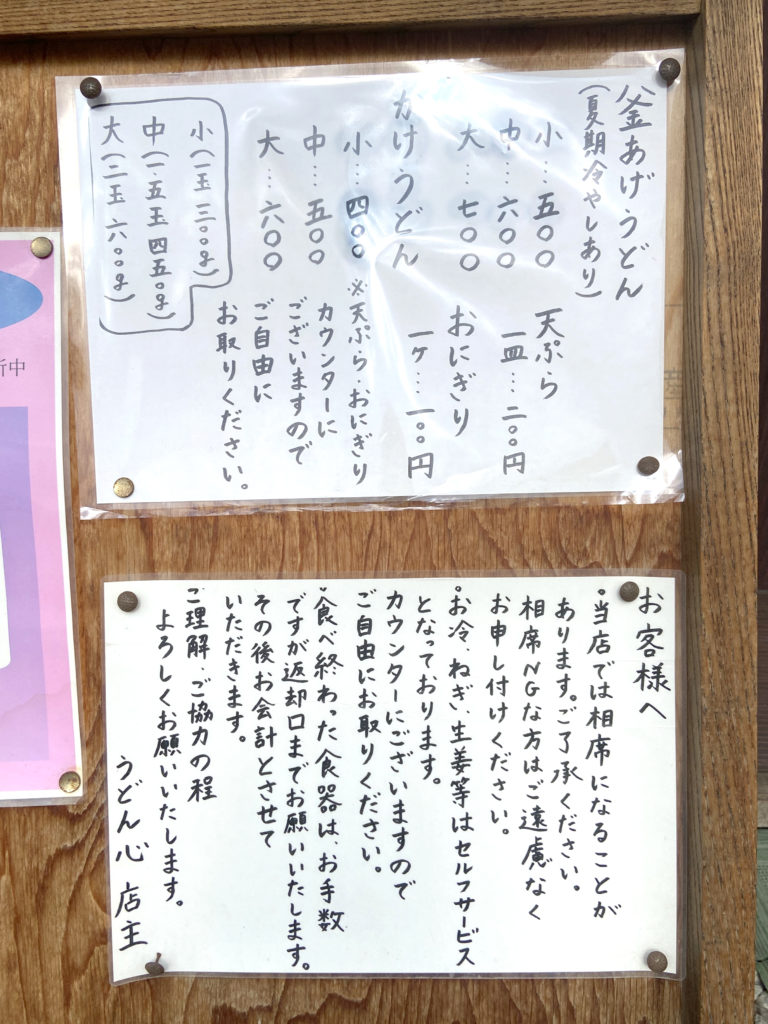 釜あげうどん
(夏期冷やしあり)
小…五〇〇
中…六〇〇
大…七〇〇
天ぷら
一皿…二〇〇円
おにぎり
一ケ…一〇〇円
かけうどん
小…四〇〇
中…五〇〇
大…六〇〇
※天ぷら、おにぎり
カウンターに
ございますので
ご自由に
お取りください。
小(一玉 三〇〇g)
中(一.五玉 四五〇g)
大(二玉 六〇〇g)
お客様へ
・当店では相席になることが
あります。ご了承ください。
相席NGな方はご遠慮なく
お申し付けください。
・お冷、ねぎ、生姜等はセルフサービス
となっております。
カウンターにございますので
ご自由にお取りください。
・食べ終わった食器は、お手数
ですが返却口までお願いいたします。
その後お会計とさせて
いただきます。
ご理解、ご協力の程
よろしくお願いいたします。
うどん心 店主
中